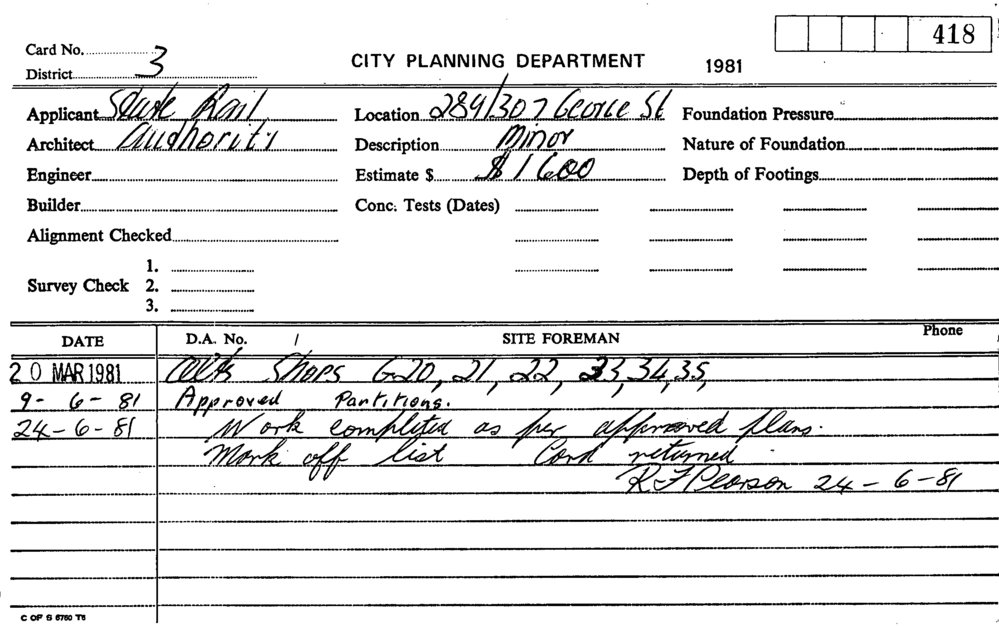 418
Card No.
District 3
CITY PLANNING DEPARTMENT 1981
Applicant State Rail
Location 289/307 George St
Foundation Pressure
Architect Authority
Description Minor
Nature of Foundation
Engineer
Estimate $ $1600
Depth of Footings
Builder
Conc. Tests (Dates)
Alignment Checked
1.
Survey Check 2.
3.
DATE D.A. No. / SITE FOREMAN Phone
20 MAR 1981 Alts Shops G20, 21, 22, 33, 34, 35,
9-6-81 Approved Partitions.
24-6-81 Work completed as per approved plans.
Mark off list Card returned
R F Pearson 24-6-81
C OF S 8760 T6